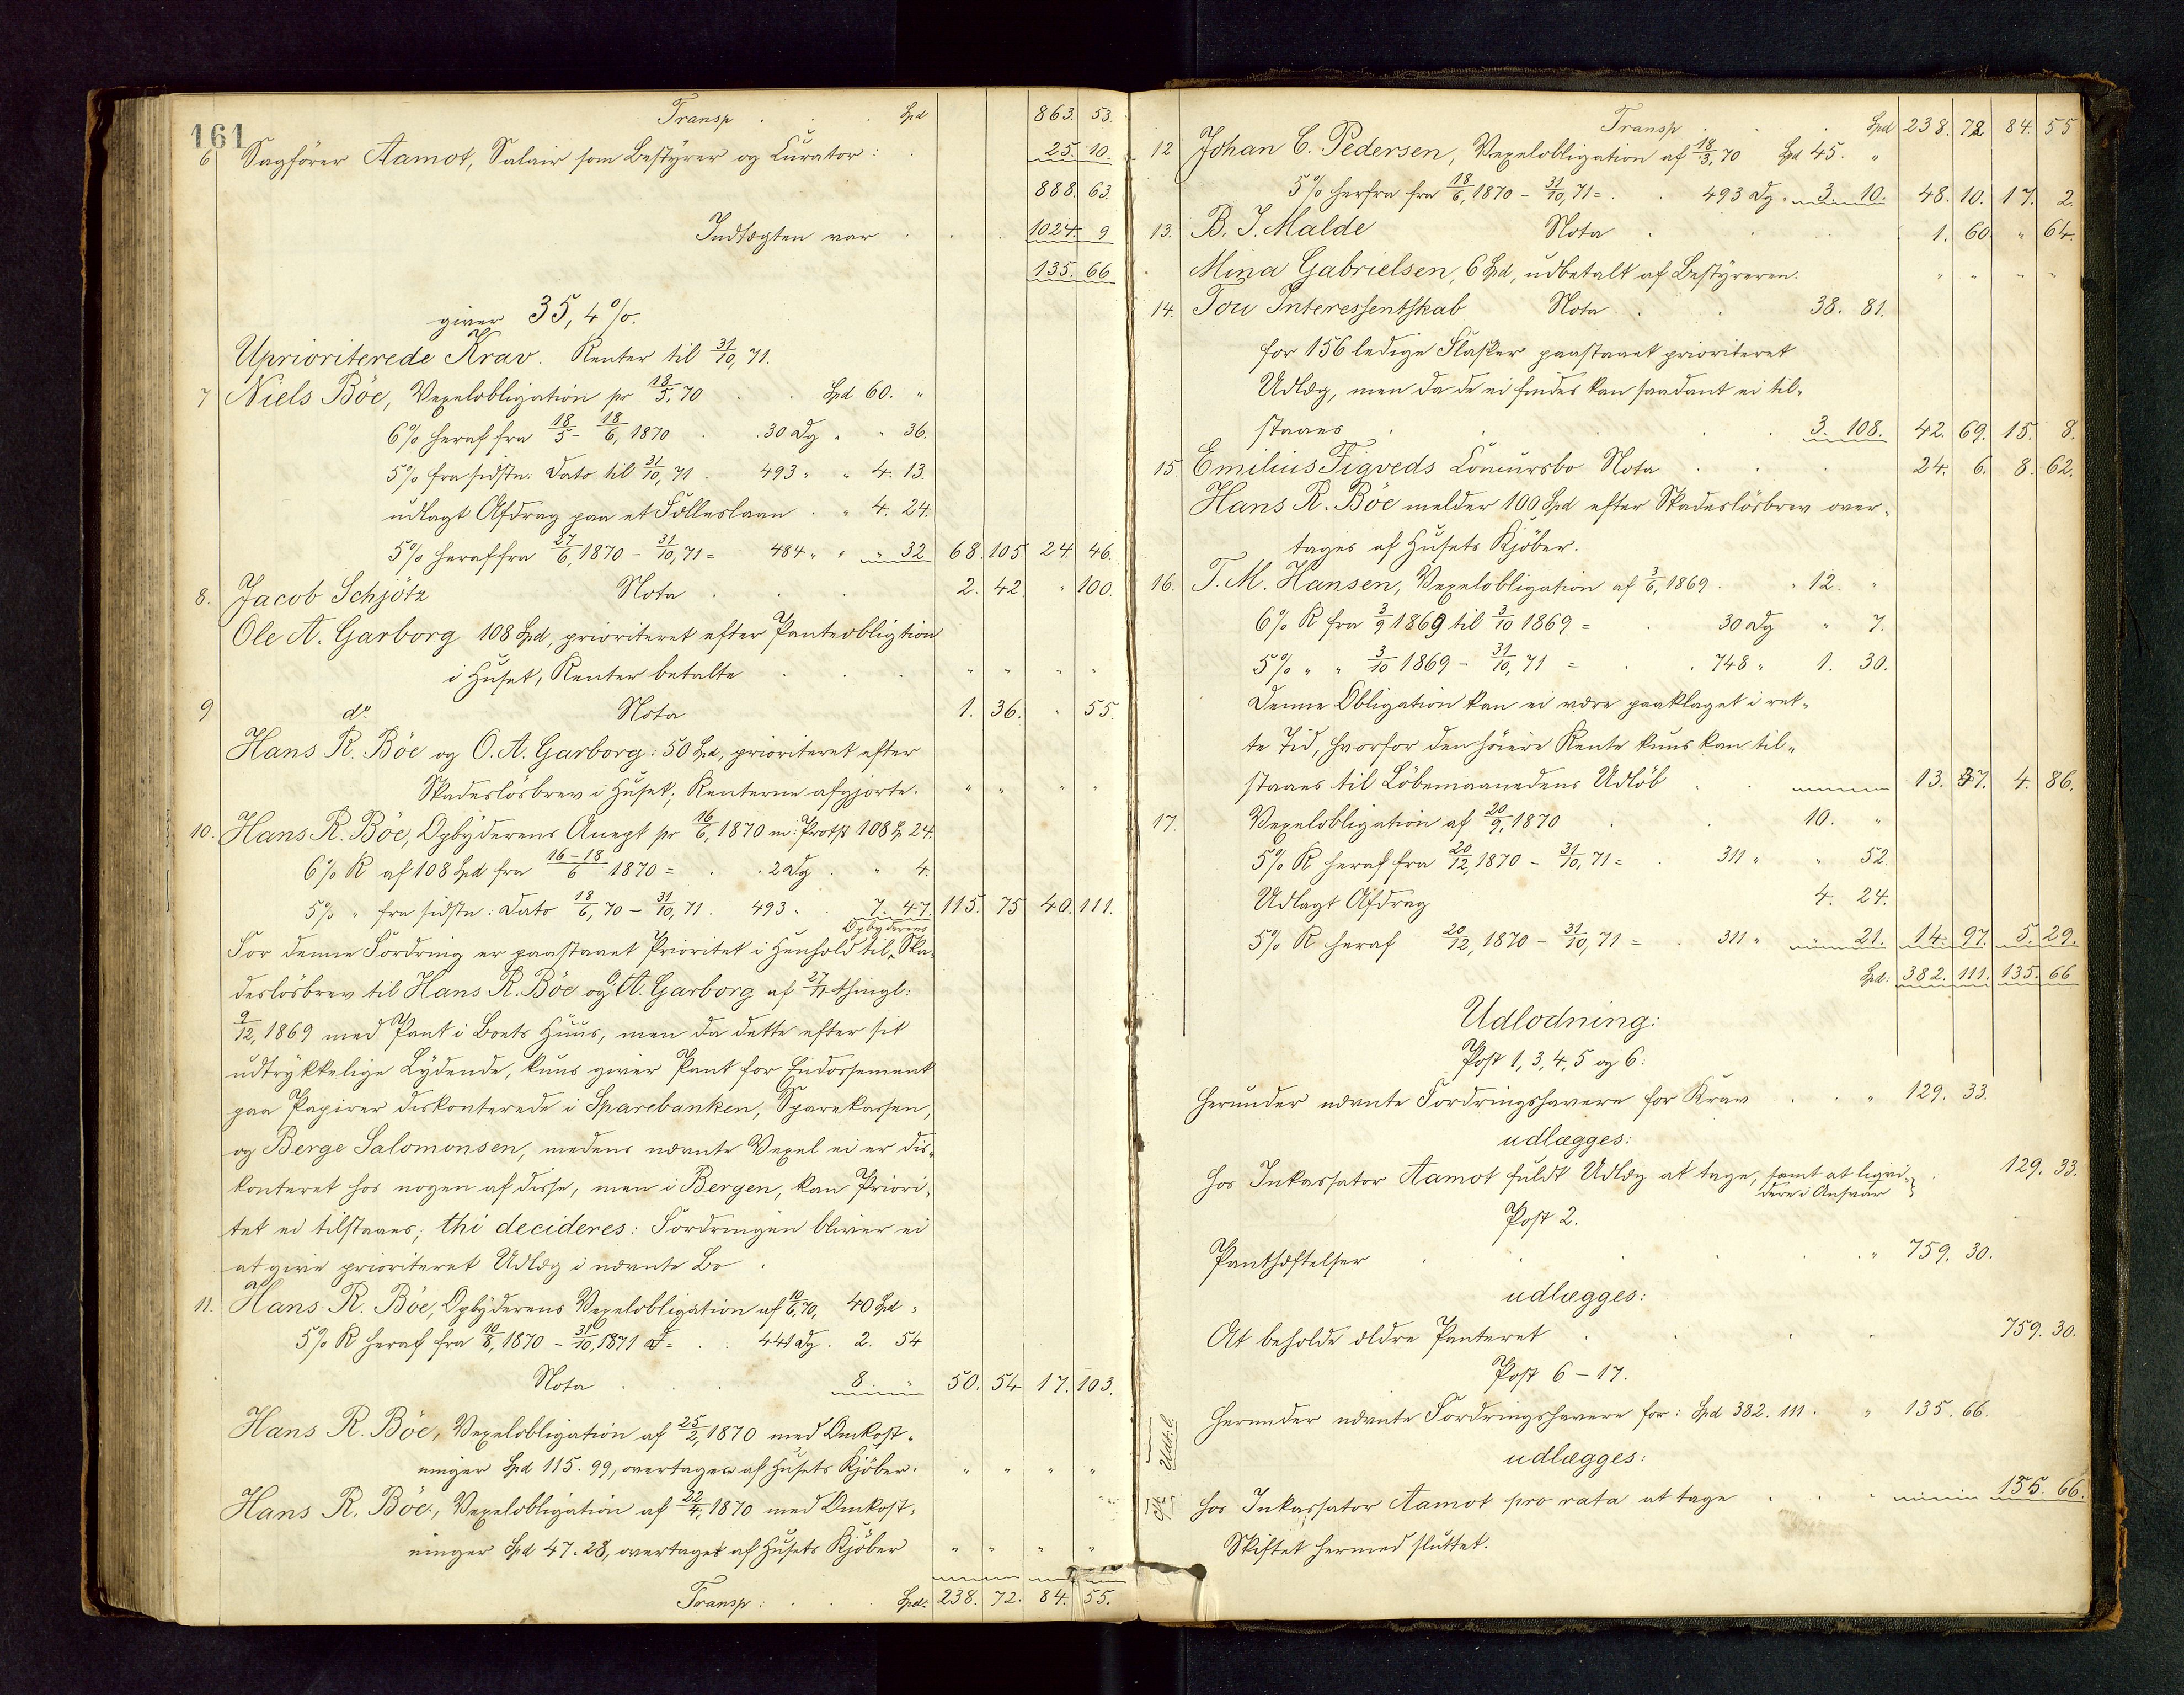 161
Transp . . Spd 863. 53.
6 Sagförer Aamot, Salair som Bestyrer og Curator: . 25. 10.
888. 63.
Indtægten var . . . 1024. 9
135. 66
giver 35,4 %.
Uprioriterede Krav. Renter til 31/10, 71.
7 Niels Böe, Vexelobligation pr 18/5, 70 . . Spd 60. "
6% heraf fra 18/5 - 18/6, 1870 . . 30 Dg " " 36.
5% fra sidstn. Dato til 31/10, 71 . 493 " " 4. 13.
udlagt Afdrag paa et Fælleslaan . " 4. 24.
5% heraf fra 27/6, 1870 - 31/10, 71 = 484 " " " 32 68. 105. 24. 46.
8. Jacob Schjötz Nota . . . 2. 42. " 100.
Ole A. Garborg 108 Spd, prioriteret efter Panteobligtion
i Huset, Renter betalte . . . " " " "
9 do. Nota 1. 36. " 55.
Hans R. Böe og O. A. Garborg: 50 Spd, prioriteret efter
Skadeslösbrev i Huset; Renterne afgjorte. " " " "
10. Hans R. Böe, Opbyderens Accept pr 16/6, 1870 m: Protst 108 Sp 24.
6% R af 108 Spd fra 16-18/6 1870 = . . 2 Dg . " 4.
5% " fra sidstn: Dato 18/6, 70 - 31/10, 71 . 493 " . 7. 47. 115. 75 40. 111.
Opbyderens
For denne Fordring er paastaaet Prioritet i Henhold til Ska-
deslösbrev til Hans R. Böe og O. A. Garborg af 27/11 thingl:
9/12, 1869 med Pant i Boets Huus, men da dette efter sit
udtrykkelige Lydende, kuns giver Pant for Endossement
paa Papirer diskonterede i Sparebanken, Sparekassen,
og Berge Salomonsen, medens nævnte Vexel ei er dis-
konteret hos nogen af disse, men i Bergen, kan Priori-
tet ei tilstaaes; thi decideres: Fordringen bliver ei
at give prioriteret Udlæg i nævnte Bo .
11. Hans R. Böe, Opbyderens Vexelobligation af 10/6, 70, 40 Spd "
5% R heraf fra 10/8, 1870 - 31/10, 1871 = . . 441 Dg . 2. 54
Nota . . . 8. " 50. 54 17. 103.
Hans R. Böe, Vexelobligation af 25/2, 1870 med Omkost-
ninger Spd 115. 99, overtages af Husets Kjöber. " " " "
Hans R. Böe, Vexelobligation af 22/4, 1870 med Omkost-
ninger Spd 47. 28, overtages af Husets Kjöber " " " "
Transp: . . . Spd: 238. 72. 84. 55.
Transp . . Spd 238. 72 84. 55
12 Johan C. Pedersen, Vexelobligation af 18/3, 70 Spd 45. "
5% herfra fra 18/6, 1870 - 31/10, 71 = . . 493 Dg " 3. 10. 48. 10. 17. 2.
13. B. J. Malde Nota . . . . 1. 60. " 64.
Mina Gabrielsen, 6 Spd, udbetalt af Bestyreren. " " " "
14. Tou Interessentskab Nota . . 38. 81.
for 156 ledige Flasker paastaaet prioriteret
Udlæg, men da de ei findes kan saadant ei til-
staaes . . . . 3. 108. 42. 69. 15. 8.
15. Emilius Figveds Concursbo Nota . . . 24. 6. 8. 62.
Hans R. Böe melder 100 Spd efter Skadeslösbrev over-
tages af Husets Kjöber.
16. T. M. Hansen, Vexelobligation af 3/6, 1869 . " 12. "
6% R fra 3/9 1869 til 3/10 1869 = . 30 Dg " 7.
5% " " 3/10 1869 - 31/10, 71 = . . 748 " 1. 30.
Denne Obligation kan ei være paaklaget i ret-
te Tid, hvorfor den höiere Rente kuns kan til-
staaes til Löbemaanedens Udlöb . . 13. 37. 4. 86.
17. Vexelobligation af 20/9, 1870 . . 10. "
5% R heraf fra 20/12, 1870 - 31/10, 71 = . 311 " " 52.
Udlagt Afdrag 4. 24.
5% R heraf 20/12, 1870 - 31/10, 71 = . 311 " " 21. 14. 97. 5. 29.
Spd: 382. 111. 135. 66
Udlodning:
Post 1, 3, 4, 5 og 6:
Herunder nævnte Fordringshavere for Krav . . " 129. 33.
udlægges:
hos Inkassator Aamot fuldt Udlæg at tage, samt at liqvi-
dere i Ansvar . 129. 33.
Post 2.
Panthæftelser . . . . . " 759. 30.
udlægges:
At beholde ældre Panteret . . . . 759. 30.
Post 6 - 17.
Herunder nævnte Fordringshavere for: Spd 382. 111. " 135. 66.
udlægges:
hos Inkassator Aamot pro rata at tage . . . 135. 66.
Skiftet hermed sluttet.